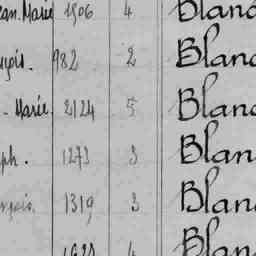 ean Marie 1906 4 Blanc
çois. 982 2 Blanc
. Marie. 2124 5 Blanc
ph. 1273 3 Blan
çois. 1319 3 Blanc
4 Blanc